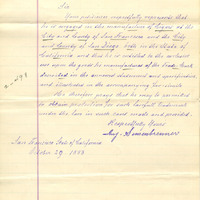 Sir
Your petitioner respectfully represents that
he is engaged in the manufacture of Cigars at the
City and County of San Francisco and the City
and County of San Diego both in the State of
California and that he is entitled to the exclusive
use upon the goods he manufactures of the Trade Mark
described in the annexed statement and specification
and illustrated in the accompanying facsimile.
He therefore prays that he may be permitted
to obtain protection for such lawful Trademark
under the law in such cases made and provided.
Respectfully Yours
Aug.
San Francisco State of California
October 29. 1888